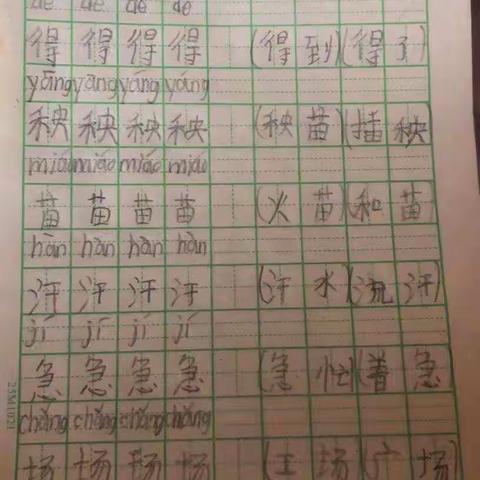 de de de de
得 得 得 得 (得到)(得了)
yāng yāng yáng yáng
秧 秧 秧 秧 (秧苗)(插秧)
miáo miáo miáo miáo
苗 苗 苗 苗 (火苗)(和苗)
hàn hàn hàn hàn
汗 汗 汗 汗 (汗水)(流汗)
jí jí jí jí
急 急 急 急 (急忙)(着急)
chǎng chǎng chǎng chǎng
场 场 场 场 (工场)(广场)
23M1021